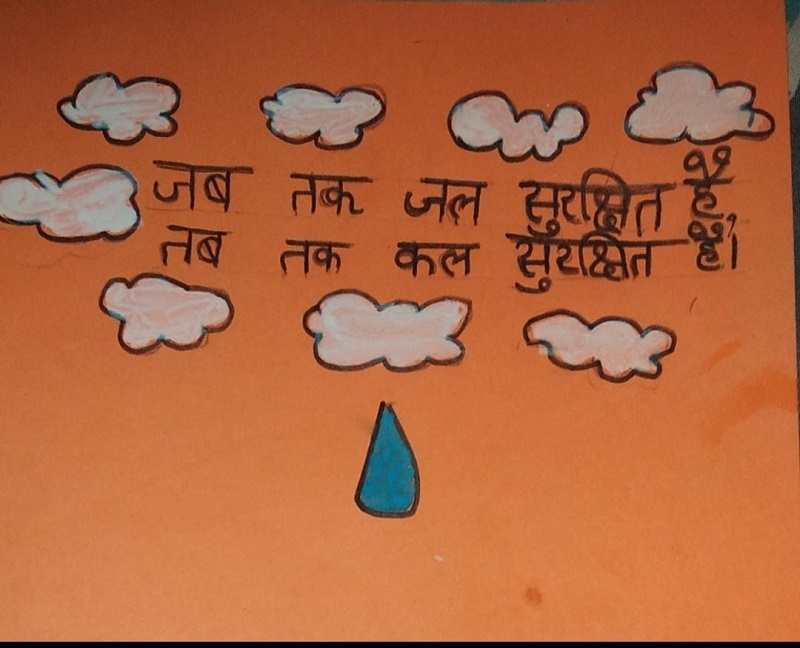 जब तक जल सुरक्षित है,
तब तक कल सुरक्षित है।